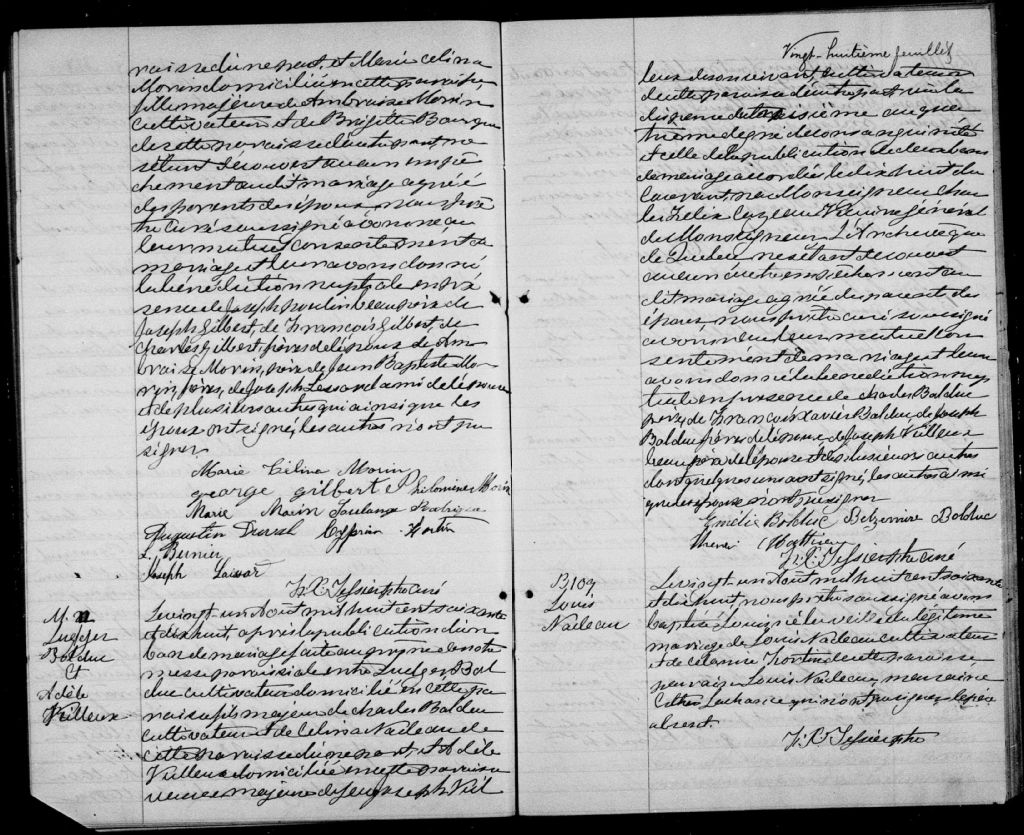 roisse d'une part, et Marie Célina
Morin domiciliée en cette paroisse,
fille majeure de Ambroise Morin
cultivateur et de Brigitte
de cette paroisse d'autre part, ne
s'étant découvert aucun empê
chement au dit mariage agréé
des parents des époux, nous prê
tre curé soussigné avons reçu
leur mutuel consentement de
mariage et leur avons donné
la bénédiction nuptiale en pré
sence de Joseph Poulin beau père de
Joseph Gilbert, de François Gilbert, de
Charles Gilbert frères de l'époux de Am
broise Morin, père de Jean Baptiste Mo
rin frère, de Joseph Lessard ami de l'épouse
et de plusieurs autres qui ainsi que les
époux ont signé, les autres n'ont pu
signer
Marie Célina Morin
george gilbert Philomène Morin
Marie Morin Soulange Rodrigue
Augustin Duval Cyprien Fortin
L. Bernier
Joseph
F. X. Tessier ptre curé
M.
Ludger
Bolduc
et
Adèle
Veilleux
Le vingt un Août mil huit cent soixante
et dix huit, après la publication d'un
ban de mariage faite au prône de notre
messe paroissiale entre Ludger Bol
duc cultivateur domicilié en cette pa
roisse fils majeur de Charles Bolduc
cultivateur et de Célina Nadeau de
cette paroisse d'une part, et Adèle
Veilleux domiciliée en cette paroisse
veuve majeure de feu Joseph Veil
Vingt-huitième feuillet
leux de son vivant cultivateur
de cette paroisse d'autre part, vu la
dispense du troisième au qua
trième degré de consanguinité
et celle de la publication de deux bans
de mariage accordées le dix huit du
courant, par Monseigneur Char
les Félix Cazeau Vicaire général
de Monseigneur L'Archevêque
de Québec, ne s'étant découvert
aucun autre empêchement au
dit mariage agréé des parents des
époux, nous prêtre curé soussigné
avons reçu leur mutuel con
sentement de mariage et leur
avons donné la bénédiction nup
tiale en présence de Charles Bolduc
père, de François Xavier Bolduc, de Joseph
Bolduc frères de l'époux de Joseph Veilleux
beau père de l'épouse et de plusieurs autres
dont quelques uns ont signé, les autres ainsi
que les époux n'ont pu signer
Emélie Bolduc Belzemire Bolduc
Mathieu
F. X. Tessier ptre curé
B109
Louis
Nadeau
Le vingt un Août mil huit cent soixante
et dix huit, nous prêtre soussigné avons
baptisé Louis, né la veille du légitime
mariage de Louis Nadeau cultivateur
et de Célanire Fortin de cette paroisse,
parrain Louis Nadeau, marraine
qui n'ont pu signer, le père
absent.
F. X. Tessier ptre